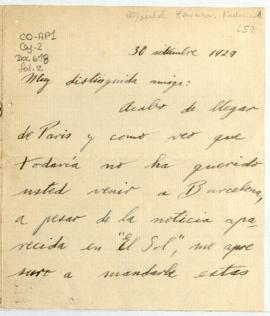 CO-AP1
Cy-2
Doc 678
Fol. 2
657
30 setiembre 1929
Muy distinguida amiga:
Acabo de llegar
de Paris y como veo que
todavía no ha querido
usted venir a Barcelona,
a pesar de la noticia apa-
recida en "El Sol", me apre
suro a mandarle estas